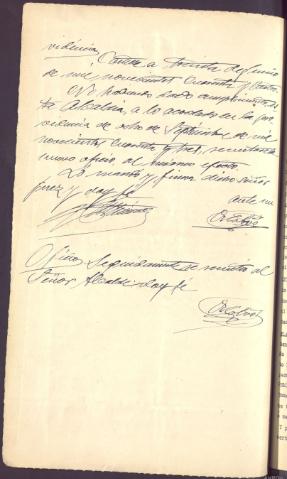 videncia Cuatro a treinta de Junio
de mil novecientos cuarenta y cuatro
No habiendo dado cumplimiento
la Alcaldía, a lo acordado en la pro
videncia de ocho de Septiembre de mil
novecientos cuarenta y tres, remítase
nuevo oficio al mismo efecto
Lo mandó y firma dicho señor
juez y doy fé
ante mi
Oficio Seguidamente se remite al
Señor Alcalde doy fé